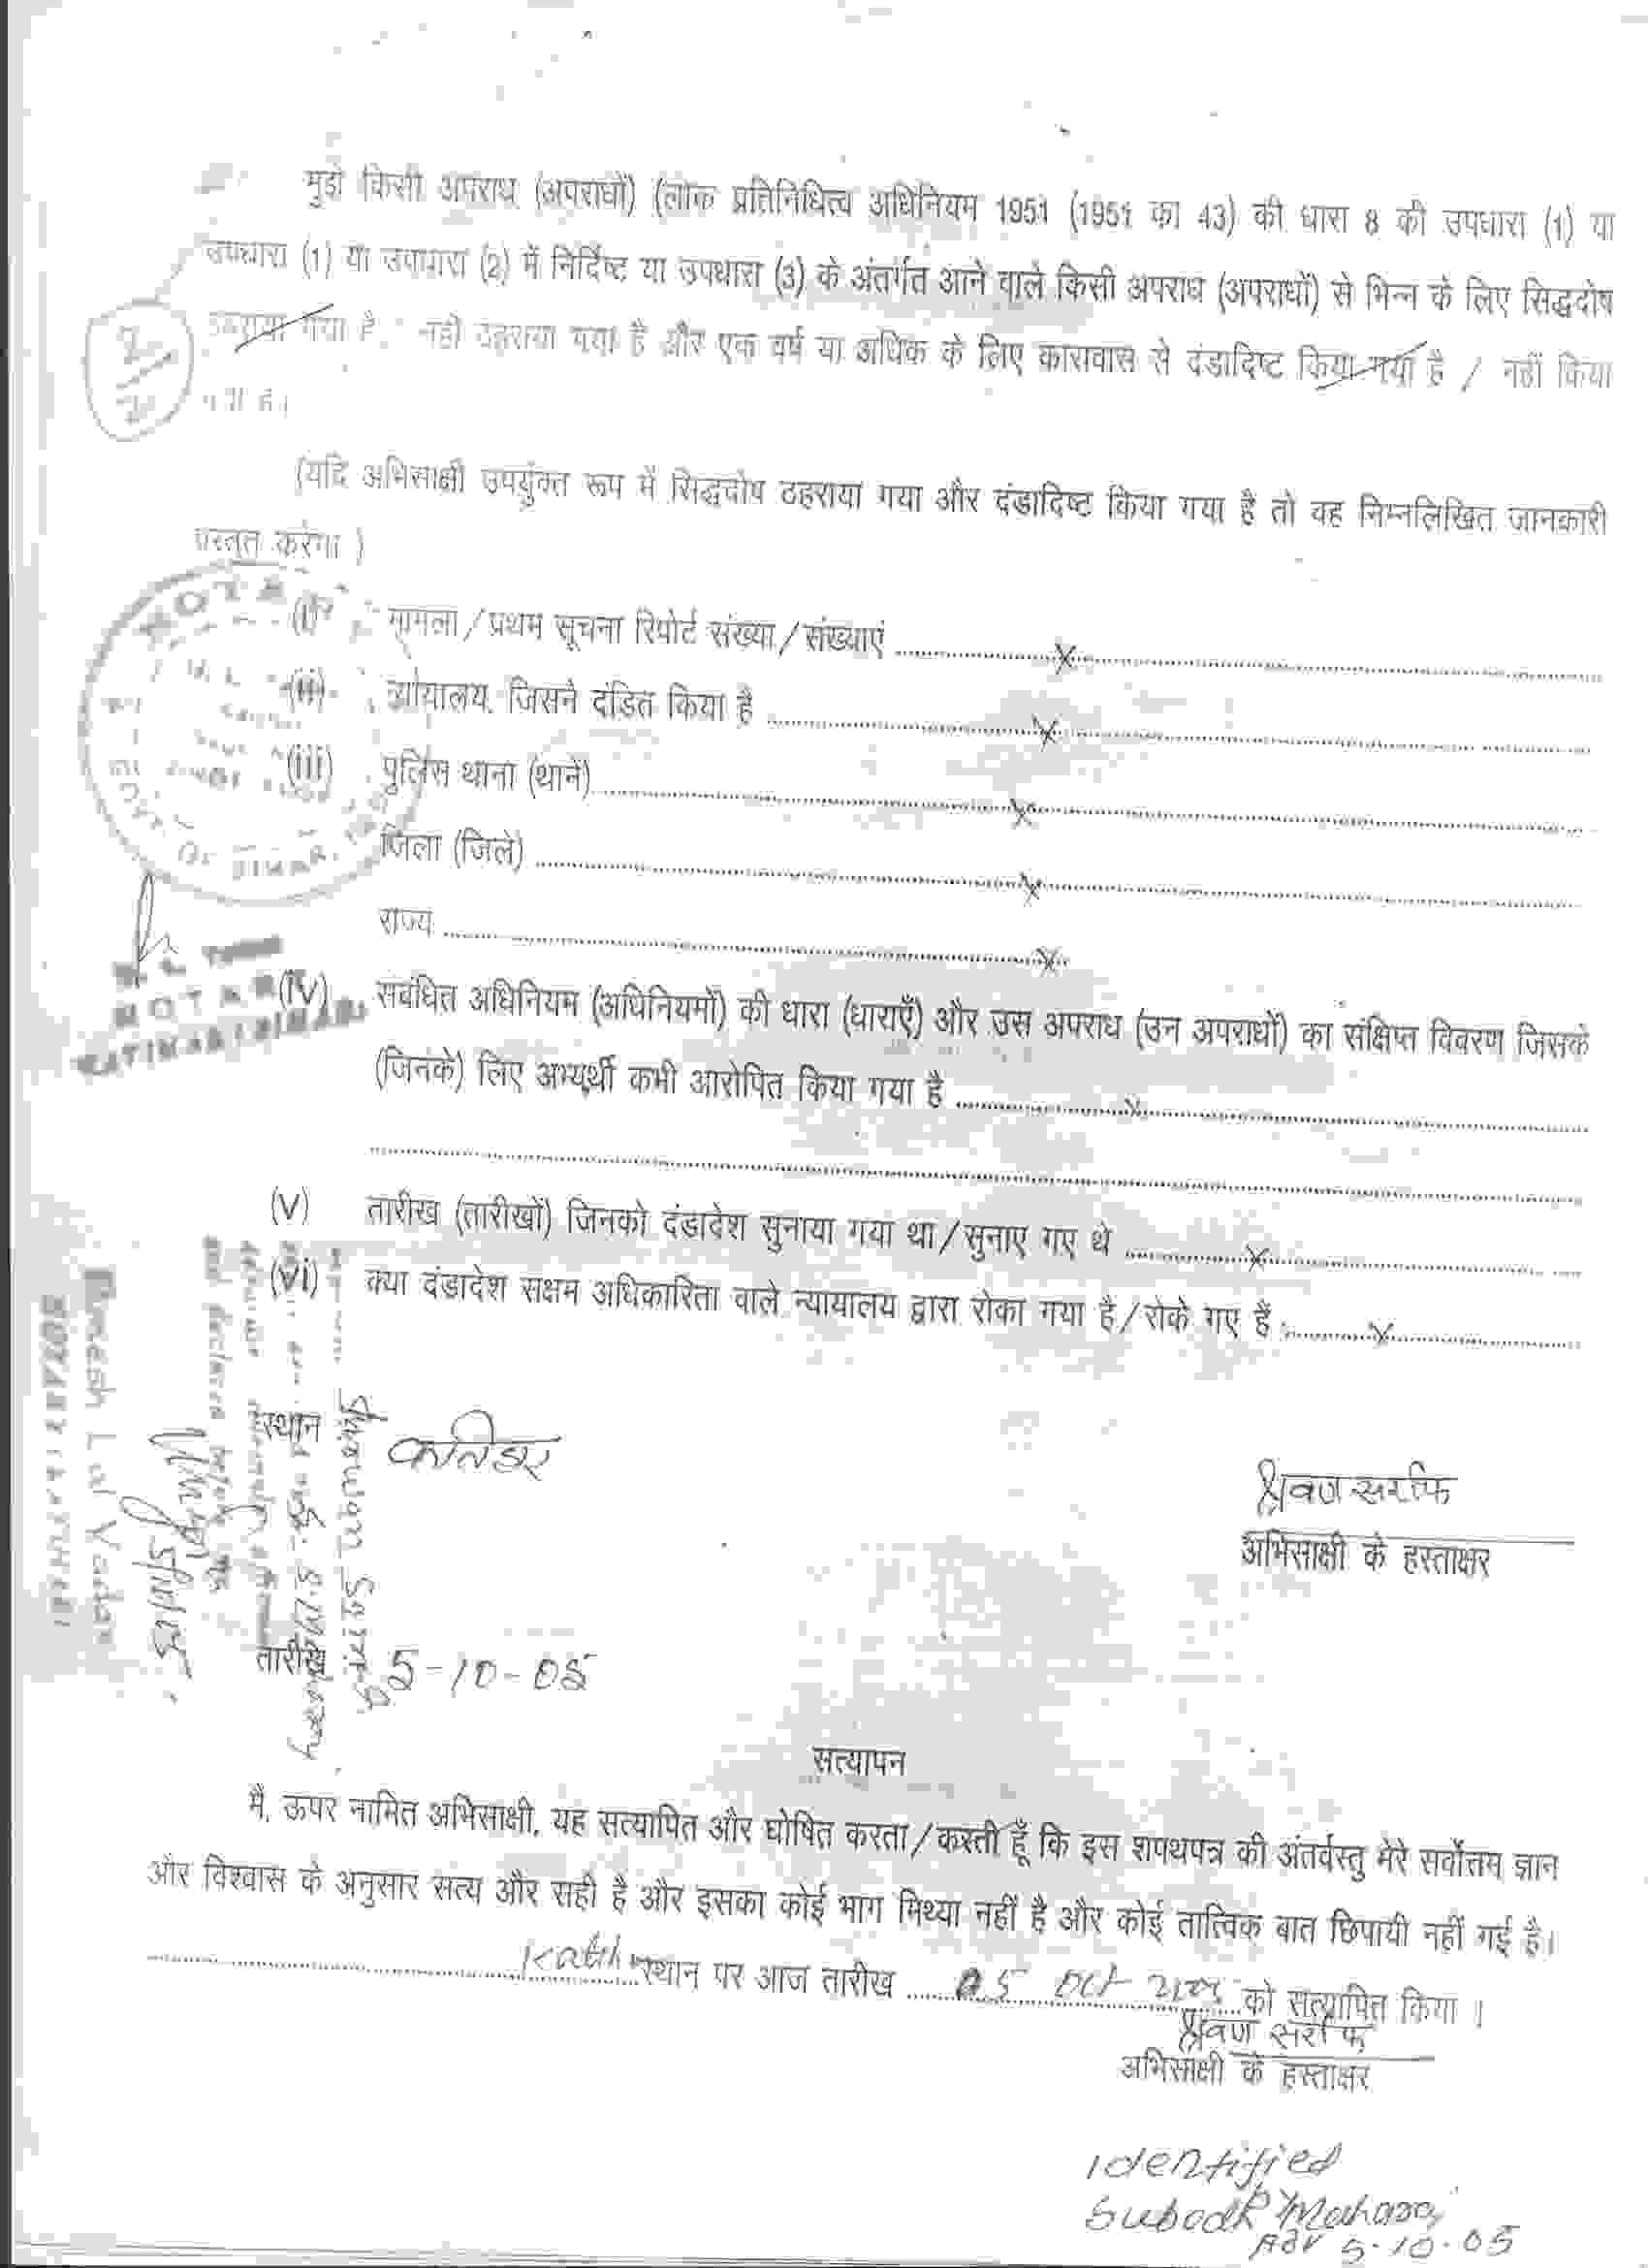 मुझे किसी अपराध (अपराधों) (लोक प्रतिनिधित्व अधिनियम 1951 (1951 का 43) की धारा 8 की उपधारा (1) या
उपधारा (1) या उपधारा (2) में निर्दिष्ट या उपधारा (3) के अंतर्गत आने वाले किसी अपराध (अपराधों) से भिन्न के लिए सिद्धदोष
ठहराया गया है / नहीं ठहराया गया है और एक वर्ष या अधिक के लिए कारावास से दंडादिष्ट किया गया है / नहीं किया
गया है।
(यदि अभिसाक्षी उपर्युक्त रूप में सिद्धदोष ठहराया गया और दंडादिष्ट किया गया है तो वह निम्नलिखित जानकारी
प्रस्तुत करेगा )
NOTARY
GOVT. OF BIHAR
(i) मामला/प्रथम सूचना रिपोर्ट संख्या/संख्याएं x
(ii) न्यायालय, जिसने दंडित किया है x
(iii) पुलिस थाना (थाने) x
जिला (जिले) x
राज्य x
NOTARY
KATIHAR (BIHAR)
(iv) संबंधित अधिनियम (अधिनियमों) की धारा (धाराएँ) और उस अपराध (उन अपराधों) का संक्षिप्त विवरण जिसके
(जिनके) लिए अभ्यर्थी कभी आरोपित किया गया है x
(v) तारीख (तारीखों) जिनको दंडादेश सुनाया गया था/सुनाए गए थे x
(vi) क्या दंडादेश सक्षम अधिकारिता वाले न्यायालय द्वारा रोका गया है/रोके गए हैं x
Lal Yadav
स्थान कटिहार
श्रवण सर्राफ
अभिसाक्षी के हस्ताक्षर
तारीख 5-10-05
सत्यापन
मैं, ऊपर नामित अभिसाक्षी, यह सत्यापित और घोषित करता/करती हूँ कि इस शपथपत्र की अंतर्वस्तु मेरे सर्वोत्तम ज्ञान
और विश्वास के अनुसार सत्य और सही है और इसका कोई भाग मिथ्या नहीं है और कोई तात्विक बात छिपायी नहीं गई है।
स्थान पर आज तारीख 05 Oct को सत्यापित किया ।
श्रवण सर्राफ
अभिसाक्षी के हस्ताक्षर
Identified
by
Subodh
Adv 5-10-05